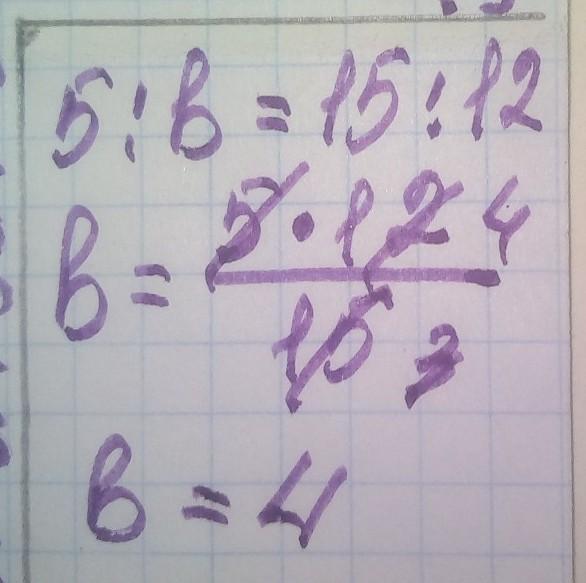 5:в=15:12
в=5•12 4
15 3
в=4